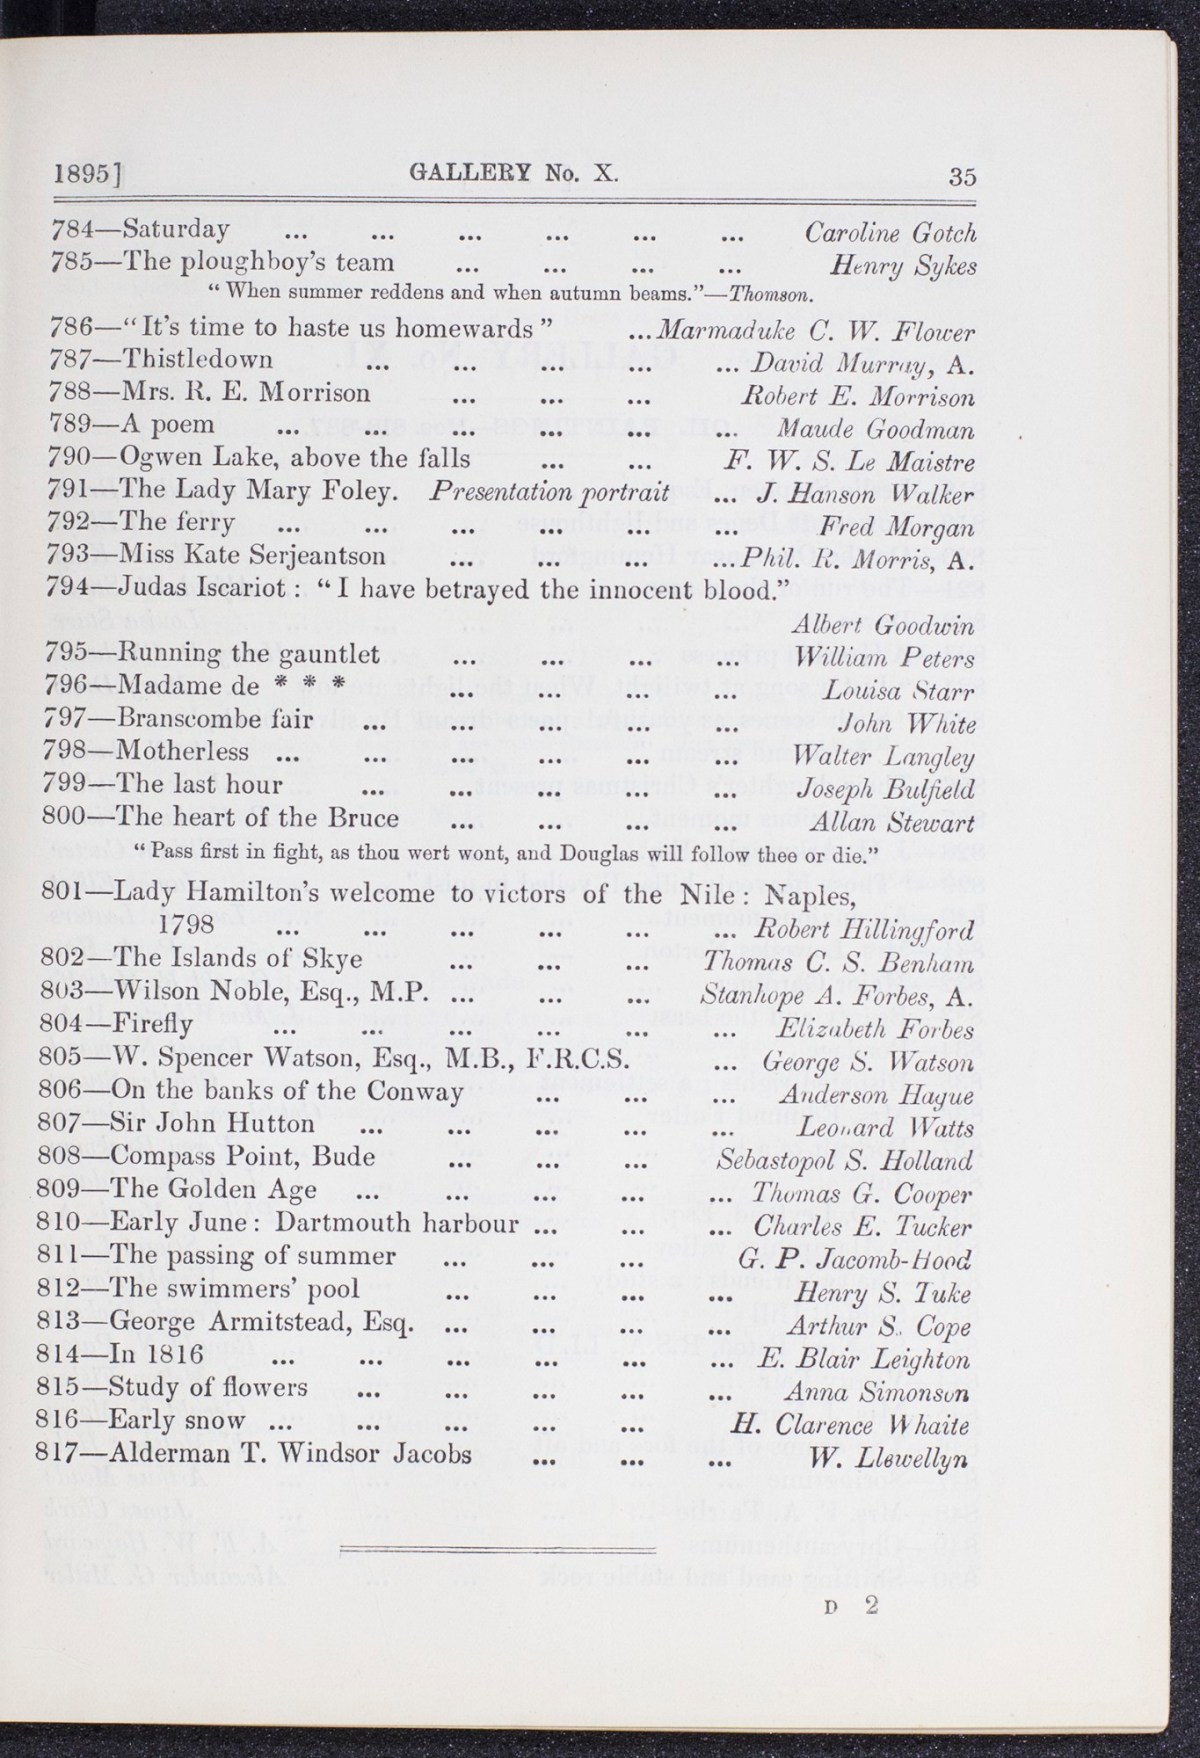 1895] GALLERY No. X. 35
784—Saturday ... ... ... ... ... ... Caroline Gotch
785—The ploughboy's team ... ... ... ... Henry Sykes
"When summer reddens and when autumn beams."—Thomson.
786—"It's time to haste us homewards" ... Marmaduke C. W. Flower
787—Thistledown ... ... ... ... ... David Murray, A.
788—Mrs. R. E. Morrison ... ... ... Robert E. Morrison
789—A poem ... ... ... ... ... ... Maude Goodman
790—Ogwen Lake, above the falls ... ... F. W. S. Le Maistre
791—The Lady Mary Foley. Presentation portrait ... J. Hanson Walker
792—The ferry ... ... ... ... ... ... Fred Morgan
793—Miss Kate Serjeantson ... ... ... ... Phil. R. Morris, A.
794—Judas Iscariot: "I have betrayed the innocent blood."
Albert Goodwin
795—Running the gauntlet ... ... ... ... William Peters
796—Madame de * * * ... ... ... ... Louisa Starr
797—Branscombe fair ... ... ... ... ... John White
798—Motherless ... ... ... ... ... ... Walter Langley
799—The last hour ... ... ... ... ... Joseph Bulfield
800—The heart of the Bruce ... ... ... ... Allan Stewart
"Pass first in fight, as thou wert wont, and Douglas will follow thee or die."
801—Lady Hamilton's welcome to victors of the Nile: Naples,
1798 ... ... ... ... ... ... Robert Hillingford
802—The Islands of Skye ... ... ... Thomas C. S. Benham
803—Wilson Noble, Esq., M.P. ... ... ... Stanhope A. Forbes, A.
804—Firefly ... ... ... ... ... ... Elizabeth Forbes
805—W. Spencer Watson, Esq., M.B., F.R.C.S. ... George S. Watson
806—On the banks of the Conway ... ... ... Anderson Hague
807—Sir John Hutton ... ... ... ... ... Leonard Watts
808—Compass Point, Bude ... ... ... Sebastopol S. Holland
809—The Golden Age ... ... ... ... ... Thomas G. Cooper
810—Early June: Dartmouth harbour ... ... ... Charles E. Tucker
811—The passing of summer ... ... ... G. P. Jacomb-Hood
812—The swimmers' pool ... ... ... ... Henry S. Tuke
813—George Armitstead, Esq. ... ... ... ... Arthur S. Cope
814—In 1816 ... ... ... ... ... ... E. Blair Leighton
815—Study of flowers ... ... ... ... ... Anna Simonson
816—Early snow ... ... ... ... ... H. Clarence Whaite
817—Alderman T. Windsor Jacobs ... ... ... W. Llewellyn
D 2